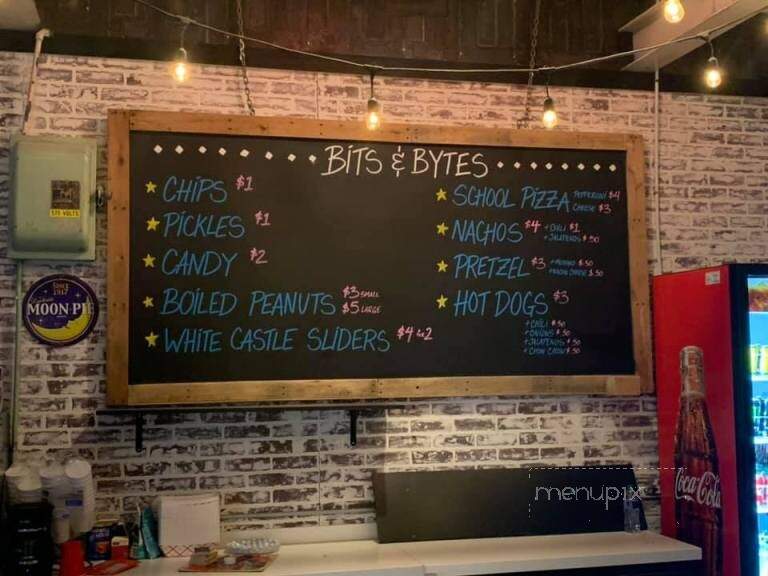 BITS & BYTES
CHIPS $1
PICKLES $1
CANDY $2
BOILED PEANUTS $3 SMALL
$5 LARGE
WHITE CASTLE SLIDERS $4 for 2
SCHOOL PIZZA PEPPERONI $4
CHEESE $3
NACHOS $4 +CHILI $1
+JALAPENOS $.50
PRETZEL $3
+NACHO CHEESE $.50
HOT DOGS $3
+CHILI $.50
+ONIONS $.50
+JALAPENOS $.50
+CHOW CHOW $.50
575 VOLTS
SINCE
1917
MOON PIE
Coca-Cola
menupix